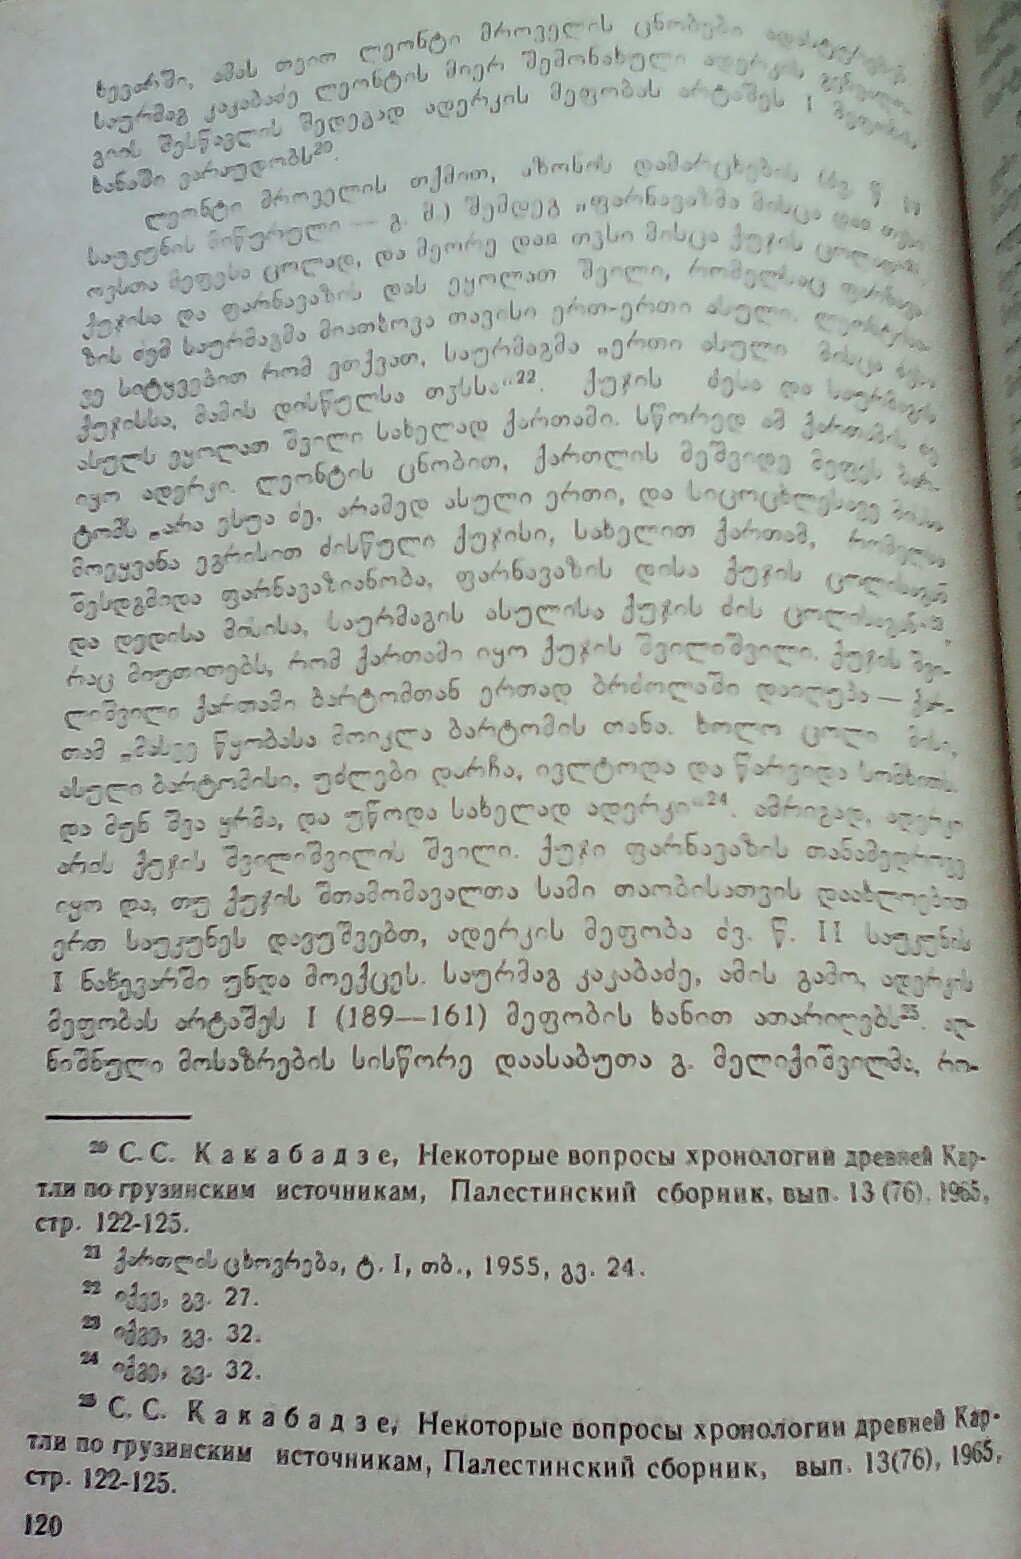 ხევარში, ამას თვით ლეონტი მროველის ცნობები
საურმაგ კაკაბაძე ლეონტის მიერ შემონახული ადერკის
გიის შესწავლის შედეგად ადერკის მეფობას არტაშეს I მეფობის
ხანაში ვარაუდობს²⁰.
ლეონტი მროველის თქმით, აზონის დამარცხების (ძვ. წ.
საუკუნის მიწურული — გ. მ.) შემდეგ „ფარნავაზმა მისცა დაჲ თჳსი
ოვსთა მეფესა ცოლად, და მეორე დაჲ თჳსი მისცა ქუჯის ცოლად“²¹.
ქუჯისა და ფარნავაზის დას ეყოლათ შვილი, რომელსაც ფარნავა-
ზის ძემ საურმაგმა მიათხოვა თავისი ერთ-ერთი ასული. ლეონტისა-
ვე სიტყვებით რომ ვთქვათ, საურმაგმა „ერთი ასული მისცა ძესა
ქუჯისსა, მამის დისწულსა თჳსსა“²². ქუჯის ძესა და საურმაგის
ასულს ეყოლათ შვილი სახელად ქართამი. სწორედ ამ ქართამის ძე
იყო ადერკი. ლეონტის ცნობით, ქართლის მეშვიდე მეფეს ბარ-
ტომს „არა ესუა ძე, არამედ ასული ერთი, და სიცოცხლესავე მისსა
მოეყვანა ეგრისით ძისწული ქუჯისი, სახელით ქართამ, რომელსა
შესდგმიდა ფარნავაზიანობა, ფარნავაზის დისა ქუჯის ცოლისაგან
და დედისა მისისა, საურმაგის ასულისა ქუჯის ძის ცოლისაგან“²³,
რაც მიუთითებს, რომ ქართამი იყო ქუჯის შვილიშვილი. ქუჯის შვი-
ლიშვილი ქართამი ბარტომთან ერთად ბრძოლაში დაიღუპა — ქარ-
თამ „მასვე წყობასა მოიკლა ბარტომის თანა. ხოლო ცოლი მისი,
ასული ბარტომისი, უძლები დარჩა, ივლტოდა და წარვიდა სომხითს.
და მუნ შვა ყრმა, და უწოდა სახელად ადერკი“²⁴. ამრიგად, ადერკი
არის ქუჯის შვილიშვილის შვილი. ქუჯი ფარნავაზის თანამედროვე
იყო და, თუ ქუჯის შთამომავალთა სამი თაობისათვის დაახლოებით
ერთ საუკუნეს დავუშვებთ, ადერკის მეფობა ძვ. წ. II საუკუნის
I ნახევარში უნდა მოექცეს. საურმაგ კაკაბაძე, ამის გამო, ადერკის
მეფობას არტაშეს I (189—161) მეფობის ხანით ათარიღებს²⁵. აღ-
ნიშნული მოსაზრების სისწორე დაასაბუთა გ. მელიქიშვილმა, რო-
²⁰ С. С. Какабадзе, Некоторые вопросы хронологии древней Кар-
тли по грузинским источникам, Палестинский сборник, вып. 13 (76), 1965,
стр. 122-125.
²¹ ქართლის ცხოვრება, ტ. I, თბ., 1955, გვ. 24.
²² იქვე, გვ. 27.
²³ იქვე, გვ. 32.
²⁴ იქვე, გვ. 32.
²⁵ С. С. Какабадзе, Некоторые вопросы хронологии древней Кар-
тли по грузинским источникам, Палестинский сборник, вып. 13(76), 1965,
стр. 122-125.
120